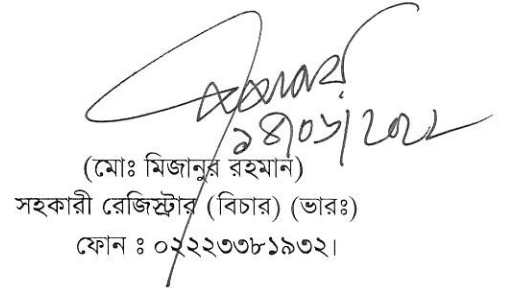 ১৪/০৬/২০২২
(মোঃ মিজানুর রহমান)
সহকারী রেজিস্ট্রার (বিচার) (ভারঃ)
ফোন ঃ ০২২২৩৩৮১৯৩২।